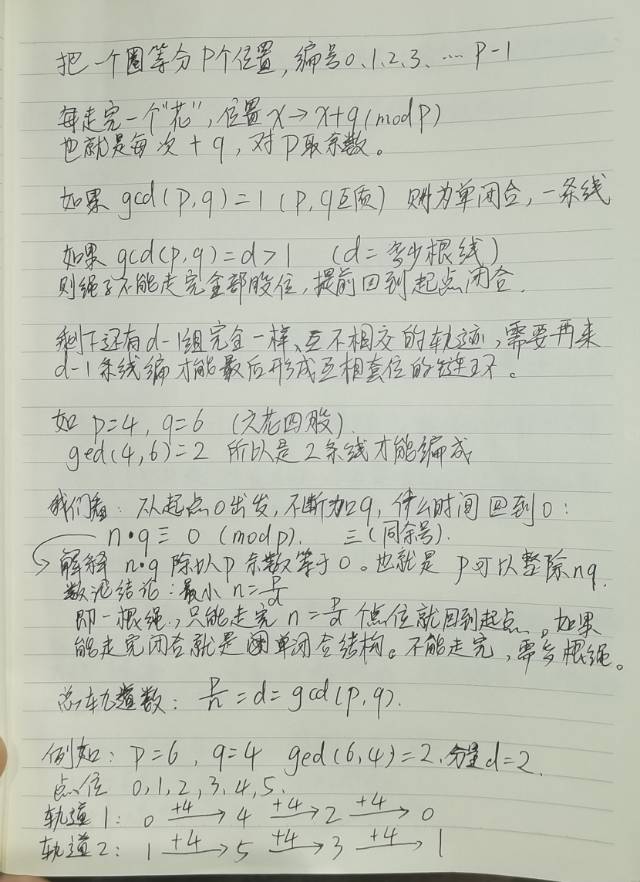 把一个圈等分P个位置,编号0、1、2、3、…P-1
每走完一个"花",位置x→x+q(modp)
也就是每次+q,对P取余数。
如果gcd(P,q)=1(P,q互质)则为单闭合,一条线
如果gcd(P,q)=d>1 (d=多少根线)
则绳子不能走完全部股位,提前回到起点闭合.
剩下还有d-1组完全一样、互不相交的轨迹,需要再来
d-1条线编才能最后形成互相套位的链环。
如P=4,q=6(六花四股).
gcd(4,6)=2 所以是2条线才能编成
我们看:从起点0出发,不断加q,什么时间回到0:
n·q≡0(modp). ≡(同余号).
解释 n·q除以p余数等于0。也就是p可以整除nq.
数论结论:最小n=p/d
即一根绳,只能走完n=p/d个点位就回到起点。如果
能走完闭合就是单闭合结构。不能走完,需多根绳。
总轨道数:p/n=d=gcd(p,q).
例如:P=6,q=4 gcd(6,4)=2.分量d=2.
点位0,1,2,3,4,5.
轨道1:0 +4→ 4 +4→ 2 +4→ 0
轨道2:1 +4→ 5 +4→ 3 +4→ 1